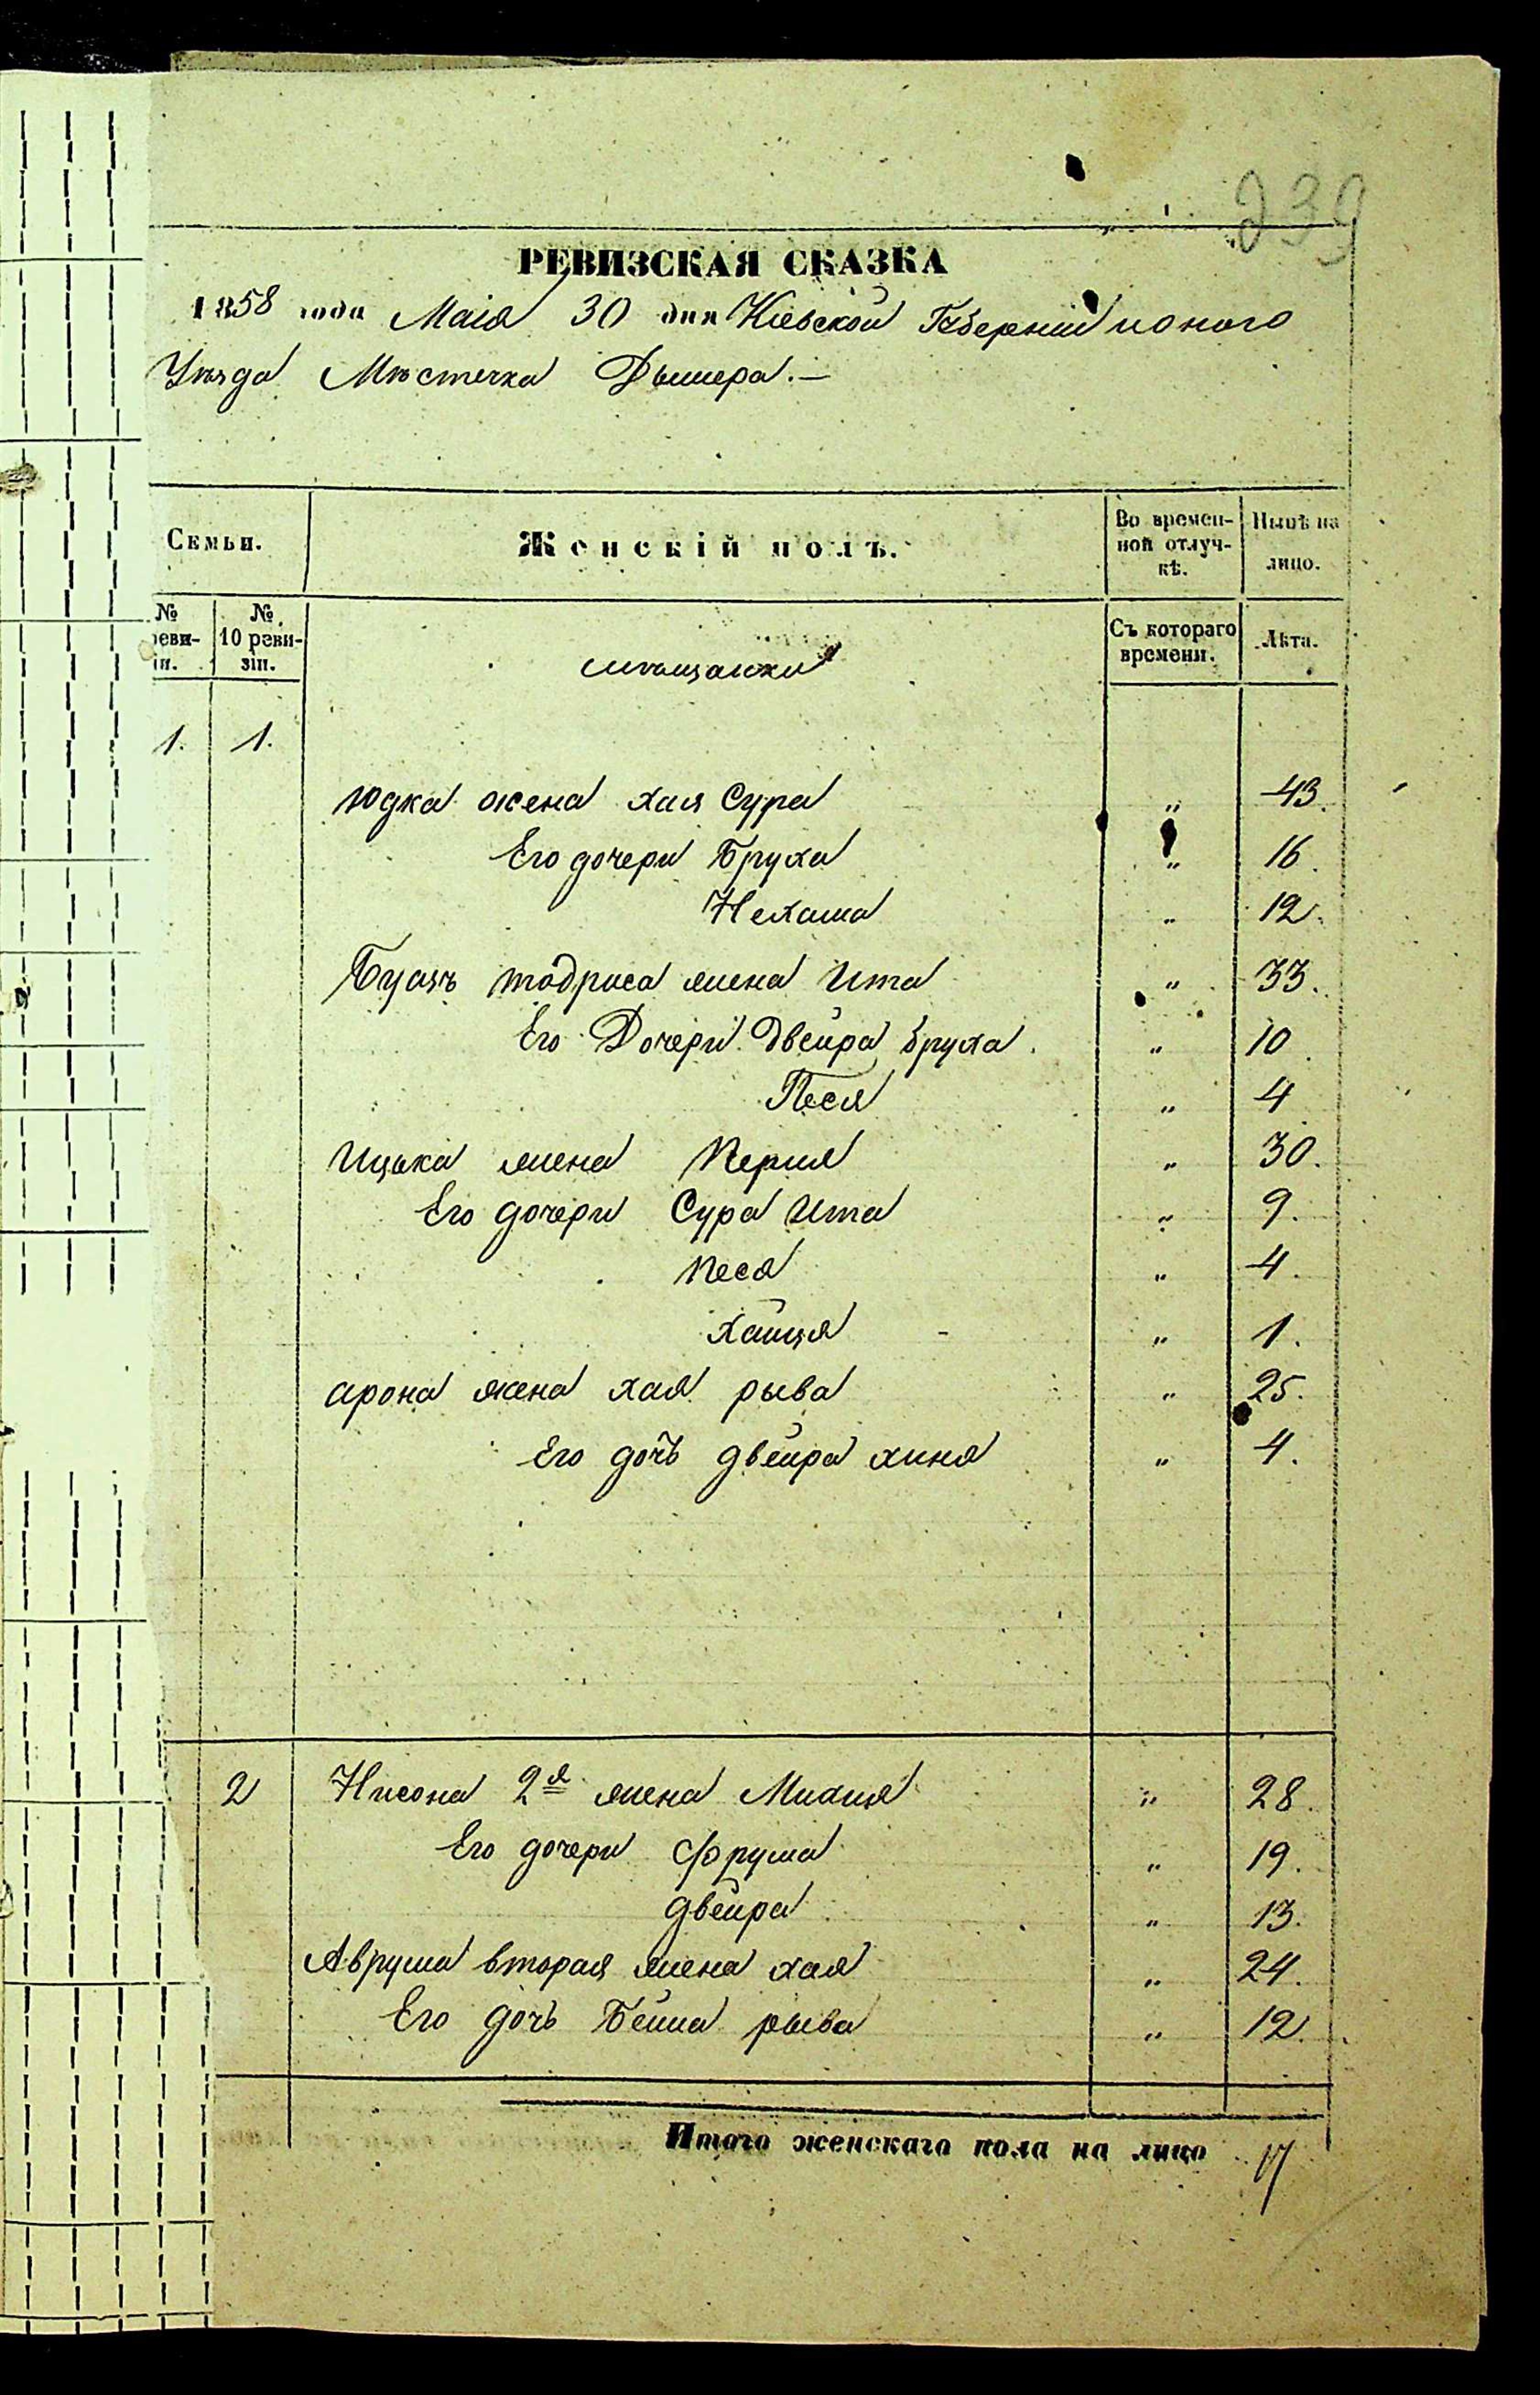 239
РЕВИЗСКАЯ СКАЗКА
1858 года Маія 30 дня Кіевской Губерніи и оного
Уѣзда Мѣстечка Дымера.—
Семьи.
Женскій полъ.
Во времен-
ной отлуч-
кѣ.
Нынѣ на
лицо.
№
реви-
зіи.
№
10 реви-
зіи.
мѣщанки
Съ котораго
времени.
Лѣта.
1. 1.
Юдка жена хая Сура „ 43.
Его дочери Бруха „ 16.
Нехама „ 12.
тодриса жена Ита „ 33.
Его Дочери Двейра бруха. „ 10.
Песя „ 4
Ицька жена Перля „ 30.
Его дочери Сура Ита „ 9.
Песя „ 4.
Хайця „ 1.
арона жена хая рыва „ 25.
Его дочь двейра хиня „ 4.
2 Нисона 2я жена „ 28.
Его дочери Фрума „ 19.
двейра „ 13.
Аврума вторая жена хая „ 24.
Его дочь Бейла рыва „ 12.
Итого женскаго пола на лицо 17